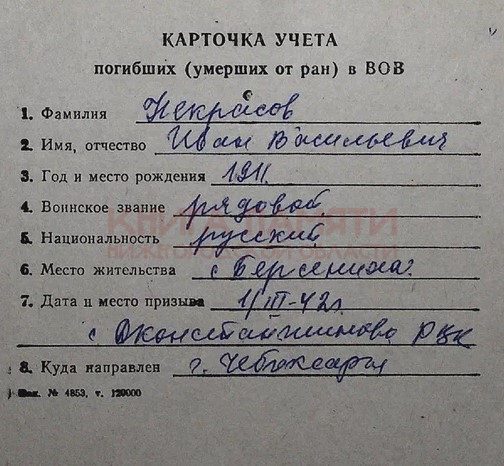 КАРТОЧКА УЧЕТА
погибших (умерших от ран) в ВОВ
1. Фамилия Некрасов
2. Имя, отчество Иван Васильевич
3. Год и место рождения 1911.
4. Воинское звание рядовой
КНИГА ПАМЯТИ
5. Национальность русский
НИЖЕГОРОДСКОЙ ОБЛАСТИ
6. Место жительства с Берсениха.
7. Дата и место призыва 1/III-42г.
с Дконстантиново РВК
8. Куда направлен г. Чебоксары
Зак. № 4853, т. 120000